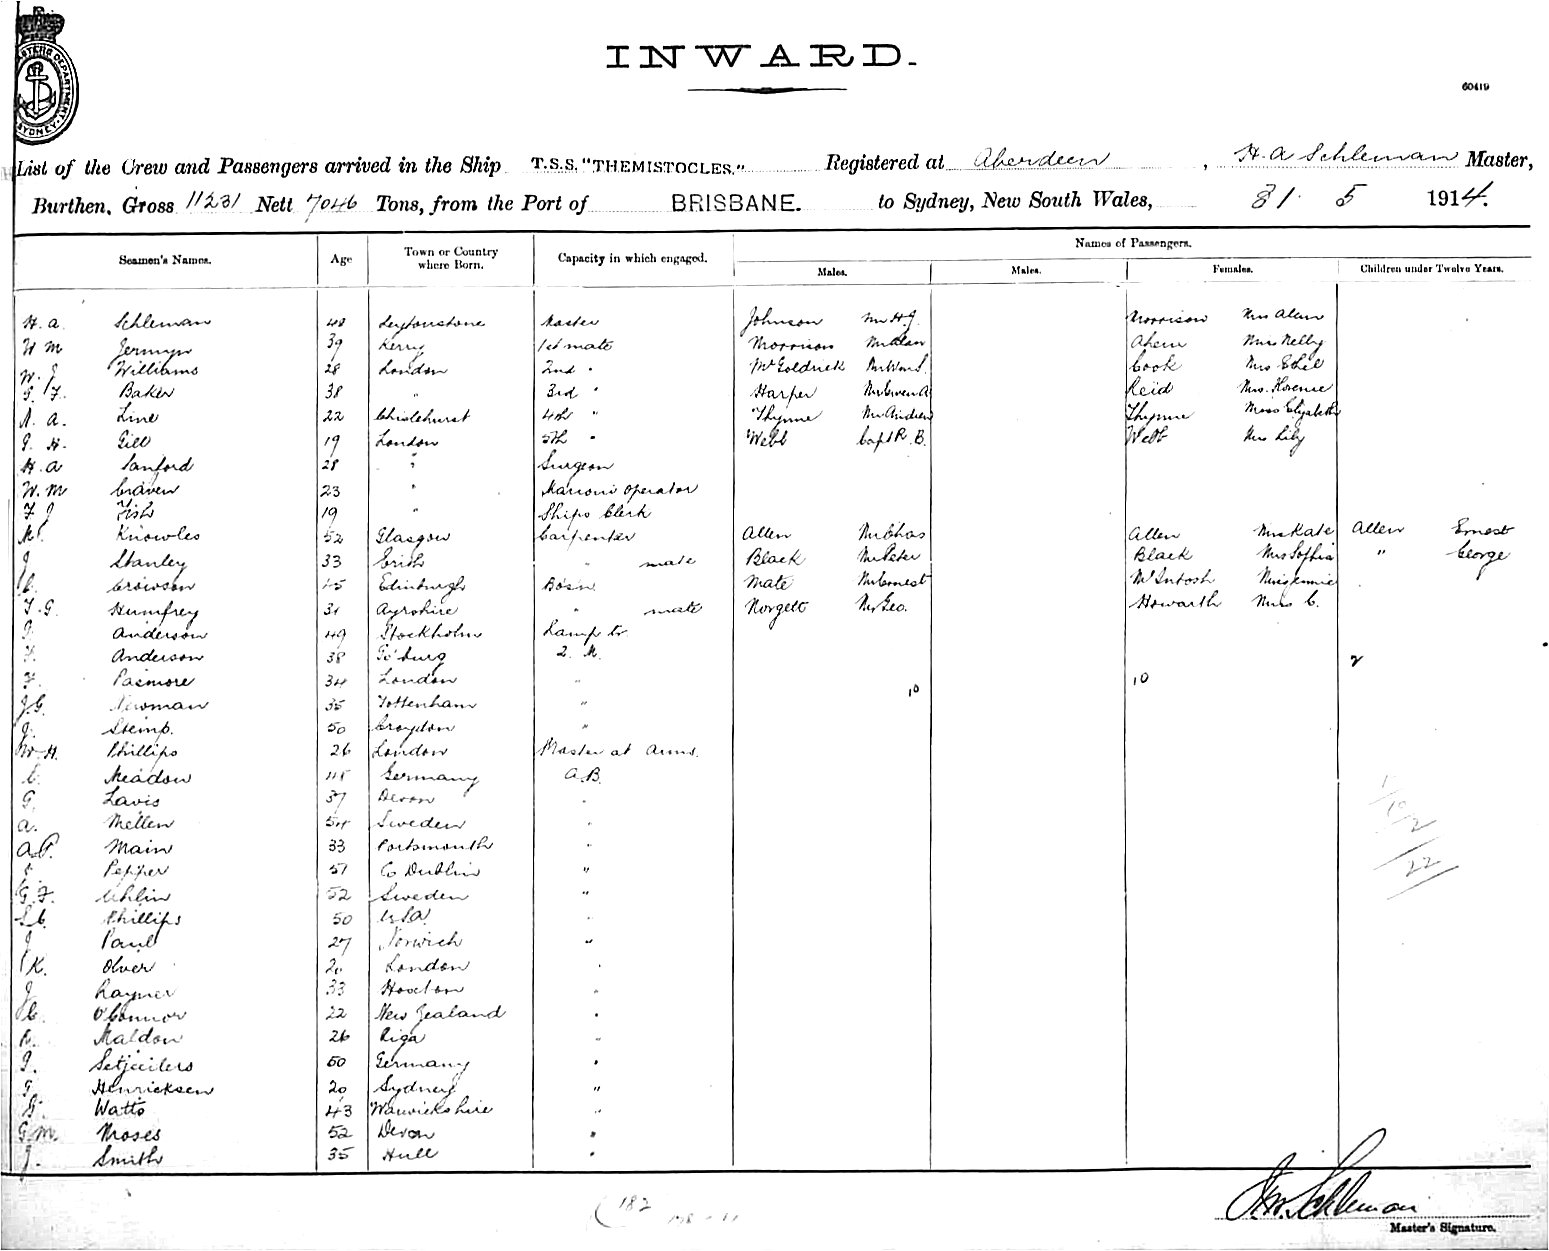 INWARD.
60419
List of the Crew and Passengers arrived in the Ship T.S.S. "THEMISTOCLES." Registered at Aberdeen, H. A Schleman Master,
Burthen, Gross 11231 Nett 7046 Tons, from the Port of BRISBANE. to Sydney, New South Wales, 31. 5 1914.
Names of Passengers.
Seamen's Names. Age Town or Country where Born. Capacity in which engaged. Males. Males. Females. Children under Twelve Years.
H. A. Schleman 48 Leytonstone Master Johnson Mr H. J. Morrison Mrs Alan
W M Jermyn 39 Kerry 1st mate Morrison Mr Alan Ahern Miss Nelly
W. J. Williams 28 London 2nd " McGoldrick Cook Mrs Ethel
G. F. Baker 38 " 3rd " Harper Mr Owen A Reid Mrs. Florence
A. Line 22 Chislehurst 4th " Thynne Mr Andrew Thynne Miss Elizabeth
H. Gill 19 London 5th " Webb Capt R. B. Webb Mrs Lily
H. A Sanford 28 " Surgeon
W. M Craven 23 " Marconi operator
F J Fish 19 " Ships Clerk
M. Knowles 52 Glasgow Carpenter Allen Mr Chas Allen Mrs Kate Allen Ernest
J. Stanley 33 Erith " mate Black Mr Peter Black Mrs Sophia " George
C. Crowson 45 Edinburgh Bosn Mate Mr Ernest McIntosh Miss Jennie
T. G. Humfrey 31 Ayrshire " mate Norgett Mr Geo. Howarth Miss C.
Anderson 49 Stockholm Lamp tr
Anderson 38 Go'burg 2. M.
F. Pasmore 34 London " 10 10 2
J. G. Newman 35 Tottenham "
J. Stemp. 50 Croydon "
W. H. Phillips 26 London Master at Arms.
C. Meadow 48 Germany A.B.
G. Lavis 37 Devon "
A. Mellen 54 Sweden "
A. P. Main 33 Portsmouth
Pepper 51 Co Dublin "
G. F. Uhlin 52 Sweden "
Phillips 50 USA "
J. Paul 27 Norwich "
K. Olver 20 London "
J. Rayner 33 Hoxton "
C. O'Connor 22 New Zealand "
R. Maldon 26 Riga "
50 Germany "
Henricksen 20 Sydney "
G. Watts 43 Warwickshire "
G. M. Moses 52 Devon "
J. Smith 35 Hull "
182
Schleman
Master's Signature.
SYDNEY